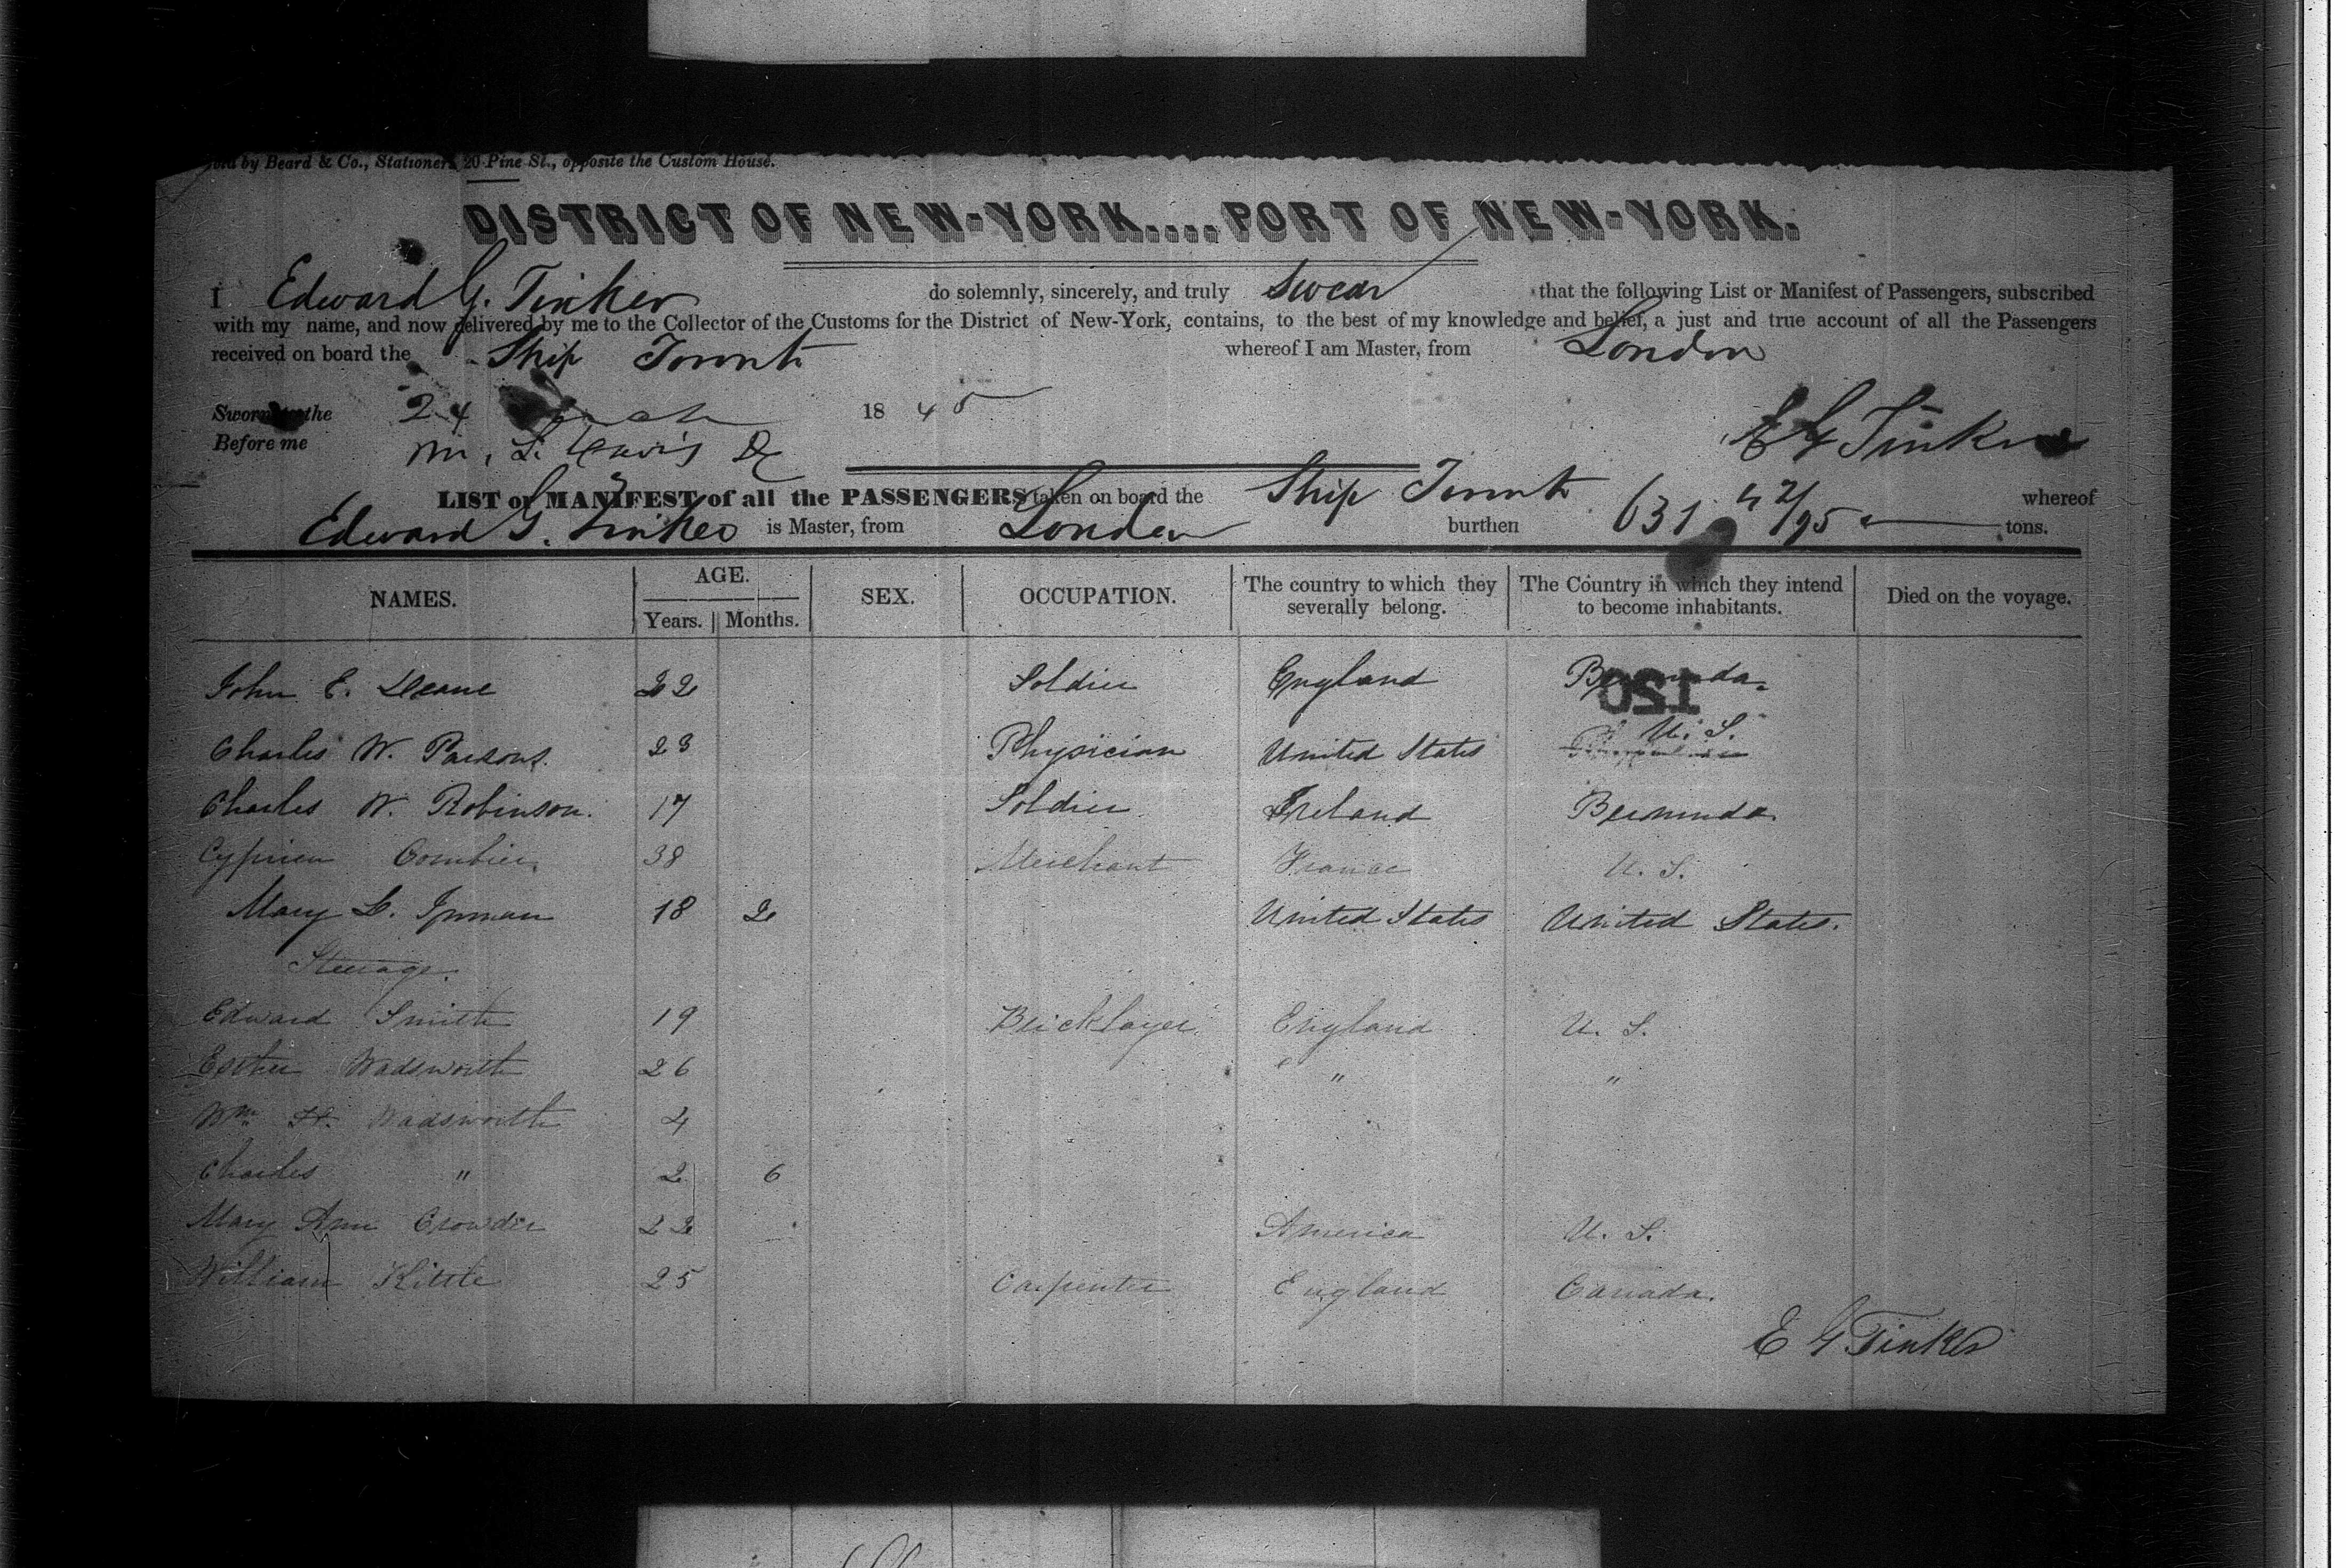 Sold by Beard & Co., Stationers, 20 Pine St., opposite the Custom House.
DISTRICT OF NEW-YORK....PORT OF NEW-YORK.
I Edward G. Tinker do solemnly, sincerely, and truly Swear that the following List or Manifest of Passengers, subscribed
with my name, and now delivered by me to the Collector of the Customs for the District of New-York, contains, to the best of my knowledge and belief, a just and true account of all the Passengers
received on board the Ship Toronto whereof I am Master, from London
Sworn to the 24 1845
E G Tinker
Before me
LIST or MANIFEST of all the PASSENGERS taken on board the Ship Toronto whereof
Edward G. Tinker is Master, from London burthen 631 42/95 tons.
NAMES. AGE. Years. Months. SEX. OCCUPATION. The country to which they severally belong. The Country in which they intend to become inhabitants. Died on the voyage.
John E. Deane 22 Soldier England Bermuda.
120
Charles W. Parsons. 23 Physician United States U. S.
Charles W. Robinson. 17 Soldier Ireland Bermuda
Cyprien Combier 38 Merchant France U. S.
Mary L. Inman 18 2 United States United States.
Steerage.
Edward Smith 19 Bricklayer England U. S.
Esther Wadsworth 26 " "
Wm H. Wadsworth 4
Charles " 2 6
Mary Ann Crowder 22 America U. S.
William Kittle 25 Carpenter England Canada.
E G Tinker